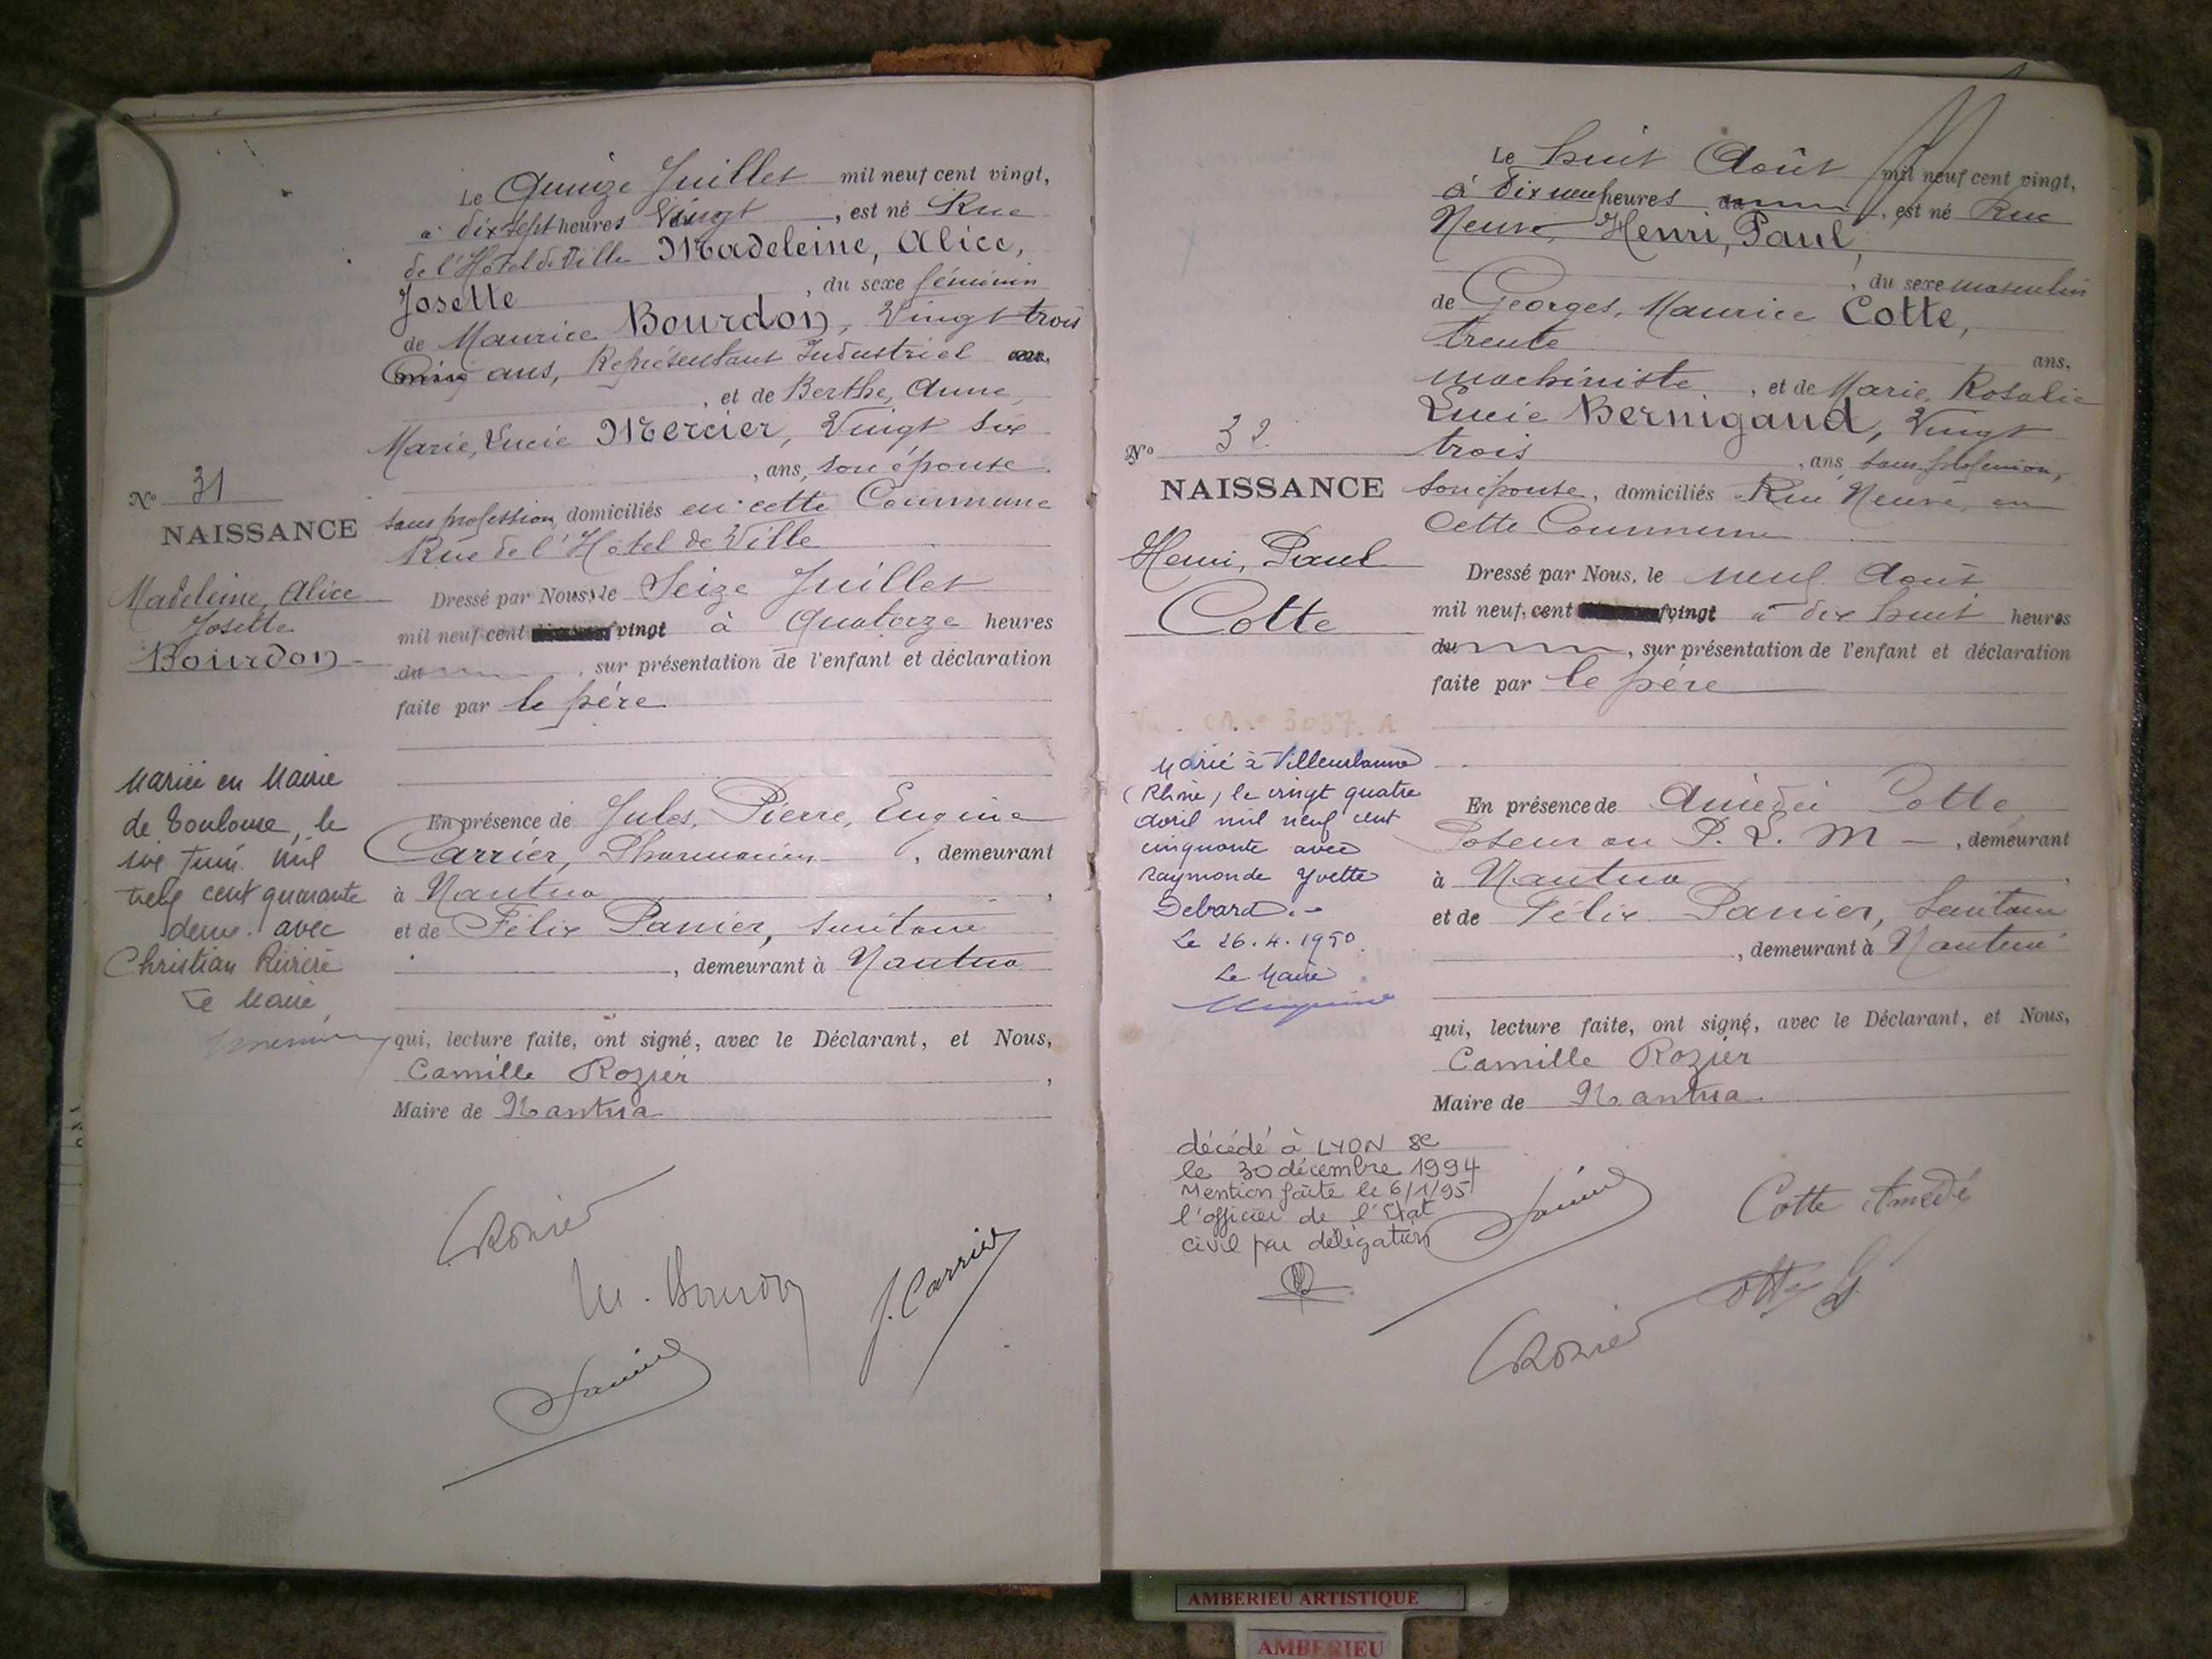 Le Quinze Juillet mil neuf cent vingt,
à dix sept heures Vingt, est né Rue
de l'Hôtel de Ville Madeleine, Alice,
Josette, du sexe féminin
de Maurice Bourdon, Vingt trois
ans, Représentant Industriel
, et de Berthe, Anne,
Marie, Lucie Mercier, Vingt six
, ans, son épouse
sans profession, domiciliés en cette Commune
Rue de l'Hôtel de Ville
Dressé par Nous, le Seize Juillet
mil neuf cent vingt à Quatorze heures
du, sur présentation de l'enfant et déclaration
faite par le père
En présence de Jules, Pierre, Eugène
Carrier, Pharmacien, demeurant
à Nantua,
et de Félix Panier,
, demeurant à Nantua
qui, lecture faite, ont signé, avec le Déclarant, et Nous,
Camille Rozier,
Maire de Nantua
N° 31
NAISSANCE
Madeleine, Alice
Josette
Bourdon
Mariée en Mairie
de Toulouse, le
six Juin mil
neuf cent quarante
deux avec
Christian Rivière
Le Maire,
Rozier
M. Bourdon
J. Carrier
Panier
Le huit Août mil neuf cent vingt,
à dix neuf heures du, est né Rue
Neuve, Henri, Paul,
, du sexe masculin
de Georges, Maurice Cotte,
trente ans,
machiniste, et de Marie, Rosalie
Lucie Bernigaud, Vingt
trois, ans, sans profession,
son épouse, domiciliés Rue Neuve, en
cette Commune
Dressé par Nous, le neuf Août
mil neuf cent vingt à dix huit heures
du, sur présentation de l'enfant et déclaration
faite par le père
En présence de Amédée Cotte
Poseur au P. L. M -, demeurant
à Nantua,
et de Félix Panier,
, demeurant à Nantua
qui, lecture faite, ont signé, avec le Déclarant, et Nous,
Camille Rozier
Maire de Nantua
N° 32
NAISSANCE
Henri, Paul
Cotte
Marié à Villeurbanne
(Rhône) le vingt quatre
avril mil neuf cent
cinquante avec
Raymonde Yvette
Debard.-
Le 26.4.1950.
Le Maire
décédé à LYON 8e
le 30 décembre 1994
Mention faite le 6/1/95
l'officier de l'Etat
civil par délégation
Panier
Cotte Amédé
Cotte G
Rozier
AMBERIEU ARTISTIQUE
AMBERIEU